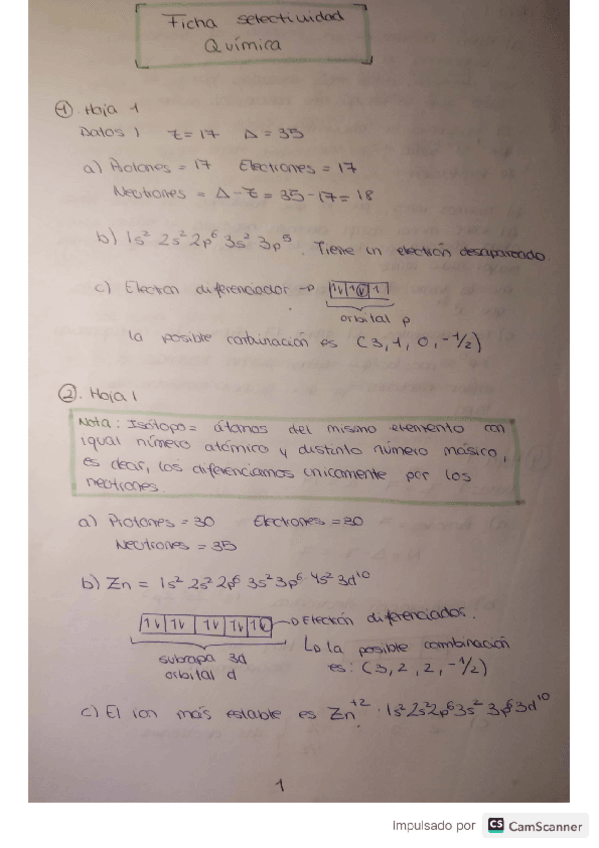 Ficha selectividad
Química
① Hoja 1
Datos) Z=17 A=35
a) Protones = 17 Electrones = 17
Neutrones = A-Z = 35-17 = 18
b) 1s² 2s² 2p⁶ 3s² 3p⁵. Tiene un electrón desapareado.
c) Electron diferenciador → 1↓ 1↓ 1
orbital p
la posible combinación es (3,1,0,-1/2)
②. Hoja 1
Nota: Isótopo= átomos del mismo elemento con
igual número atómico y distinto número másico,
es decir, los diferenciamos únicamente por los
neutrones.
a) Protones = 30 Electrones = 30
Neutrones = 35
b) Zn = 1s² 2s² 2p⁶ 3s² 3p⁶ 4s² 3d¹⁰
1↓ 1↓ 1↓ 1↓ 1↓ → Electrón diferenciador.
subcapa 3d
orbital d
↳ la posible combinación
es: (3,2,2,-1/2)
c) El ion más estable es Zn⁺². 1s² 2s² 2p⁶ 3s² 3p⁶ 3d¹⁰
1
Impulsado por CS CamScanner